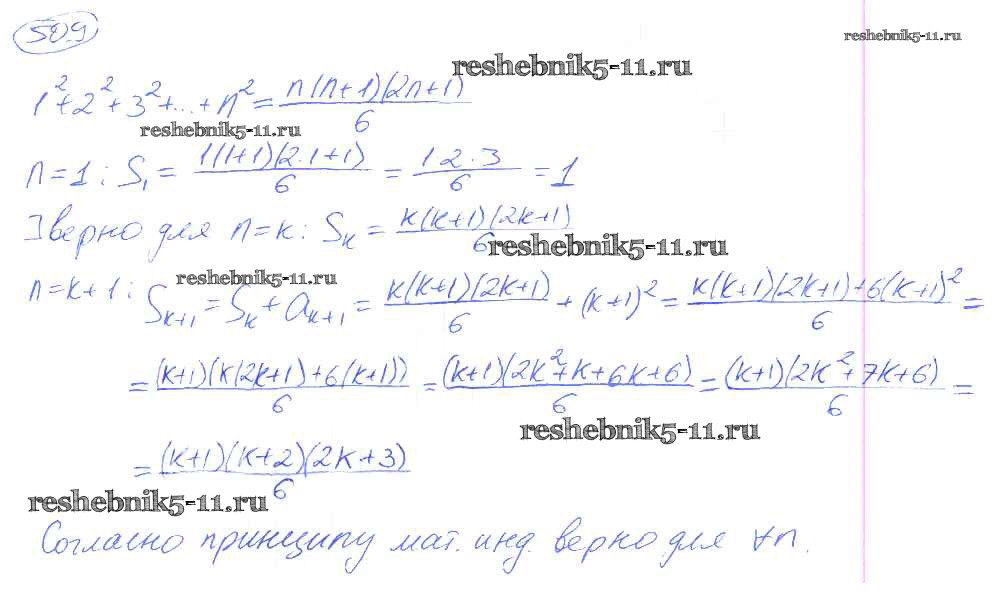 509
reshebnik5-11.ru
reshebnik5-11.ru
1²+2²+3²+...+n² = n(n+1)(2n+1)/6
reshebnik5-11.ru
n=1: S₁ = 1(1+1)(2·1+1)/6 = 1·2·3/6 = 1
]верно для n=k: Sₖ = k(k+1)(2k+1)/6
reshebnik5-11.ru
reshebnik5-11.ru
n=k+1: Sₖ₊₁ = Sₖ + aₖ₊₁ = k(k+1)(2k+1)/6 + (k+1)² = k(k+1)(2k+1)+6(k+1)²/6 =
= (k+1)(k(2k+1)+6(k+1))/6 = (k+1)(2k²+k+6k+6)/6 = (k+1)(2k²+7k+6)/6 =
reshebnik5-11.ru
= (k+1)(k+2)(2k+3)/6
reshebnik5-11.ru
Согласно принципу мат. инд. верно для ∀n.